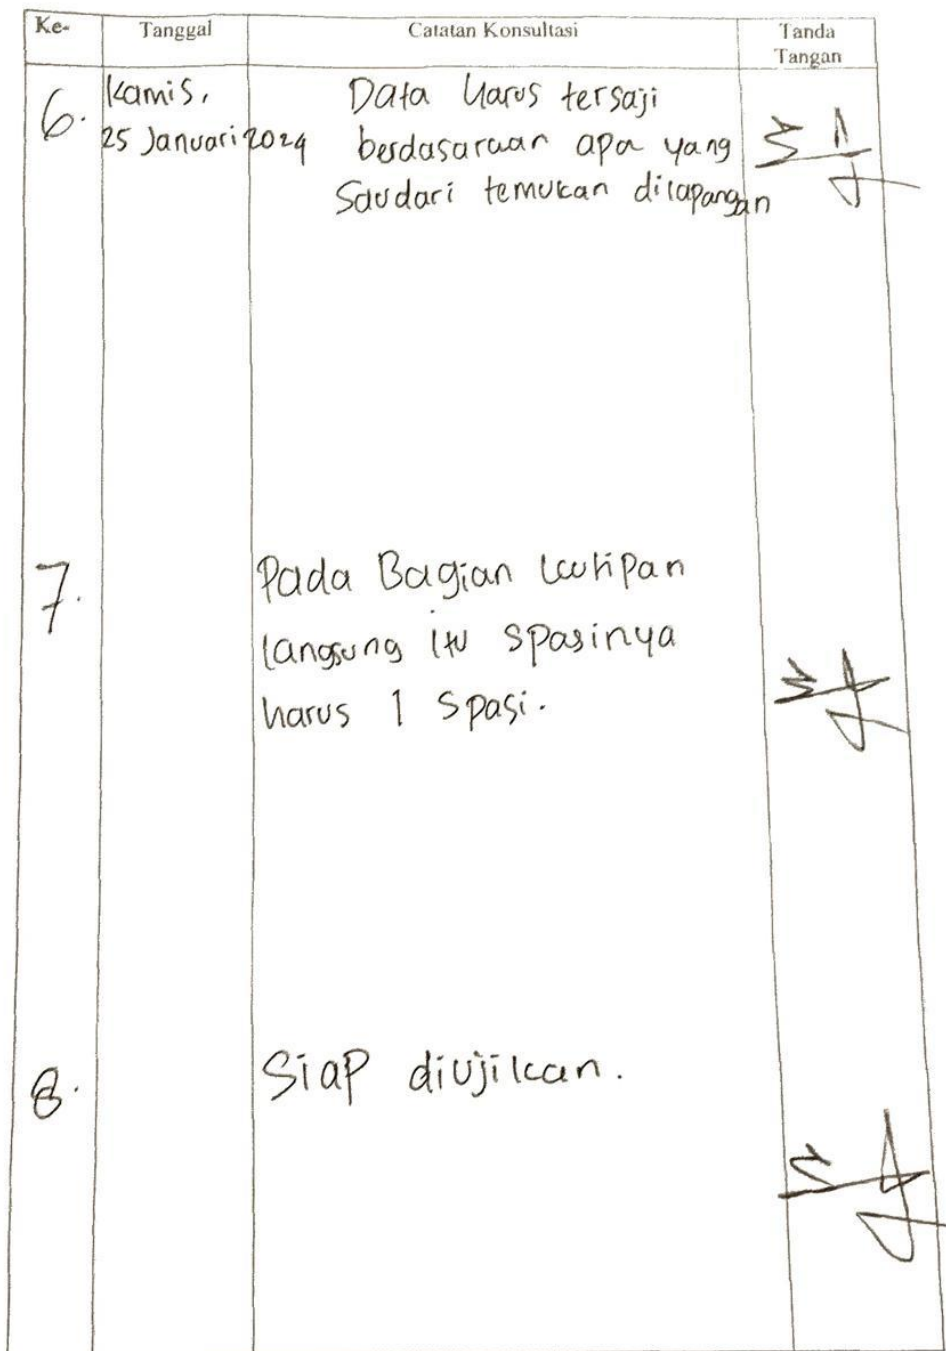 Ke- Tanggal Catatan Konsultasi Tanda
Tangan
6. Kamis, Data Harus tersaji
25 Januari 2024 berdasarkan apa yang
Saudari temukan dilapangan
7. Pada Bagian kutipan
langsung itu spasinya
harus 1 Spasi.
8. Siap diujikan.